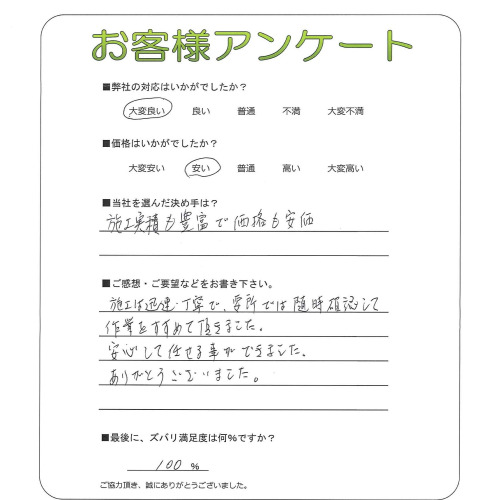 お客様アンケート
■弊社の対応はいかがでしたか？
大変良い 良い 普通 不満 大変不満
■価格はいかがでしたか？
大変安い 安い 普通 高い 大変高い
■当社を選んだ決め手は？
施工実積も豊富で価格も安価
■ご感想・ご要望などをお書き下さい。
施工は迅速・丁寧で、要所では随時確認して
作業をすすめて頂きました。
安心して任せる事ができました、
ありがとうございました。
■最後に、ズバリ満足度は何%ですか？
100 %
ご協力頂き、誠にありがとうございました。